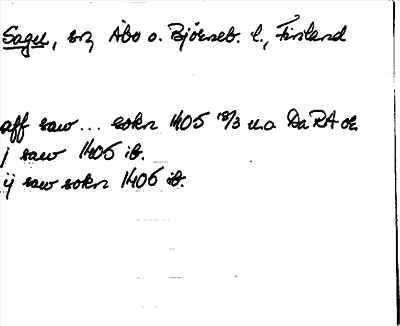 Sagu, sn, Åbo o. Björneb. l., Finland
aff saw... sokn 1405 18/3 u.o DaRA or.
j saw 1405 ib.
ij saw sokn 1406 ib.